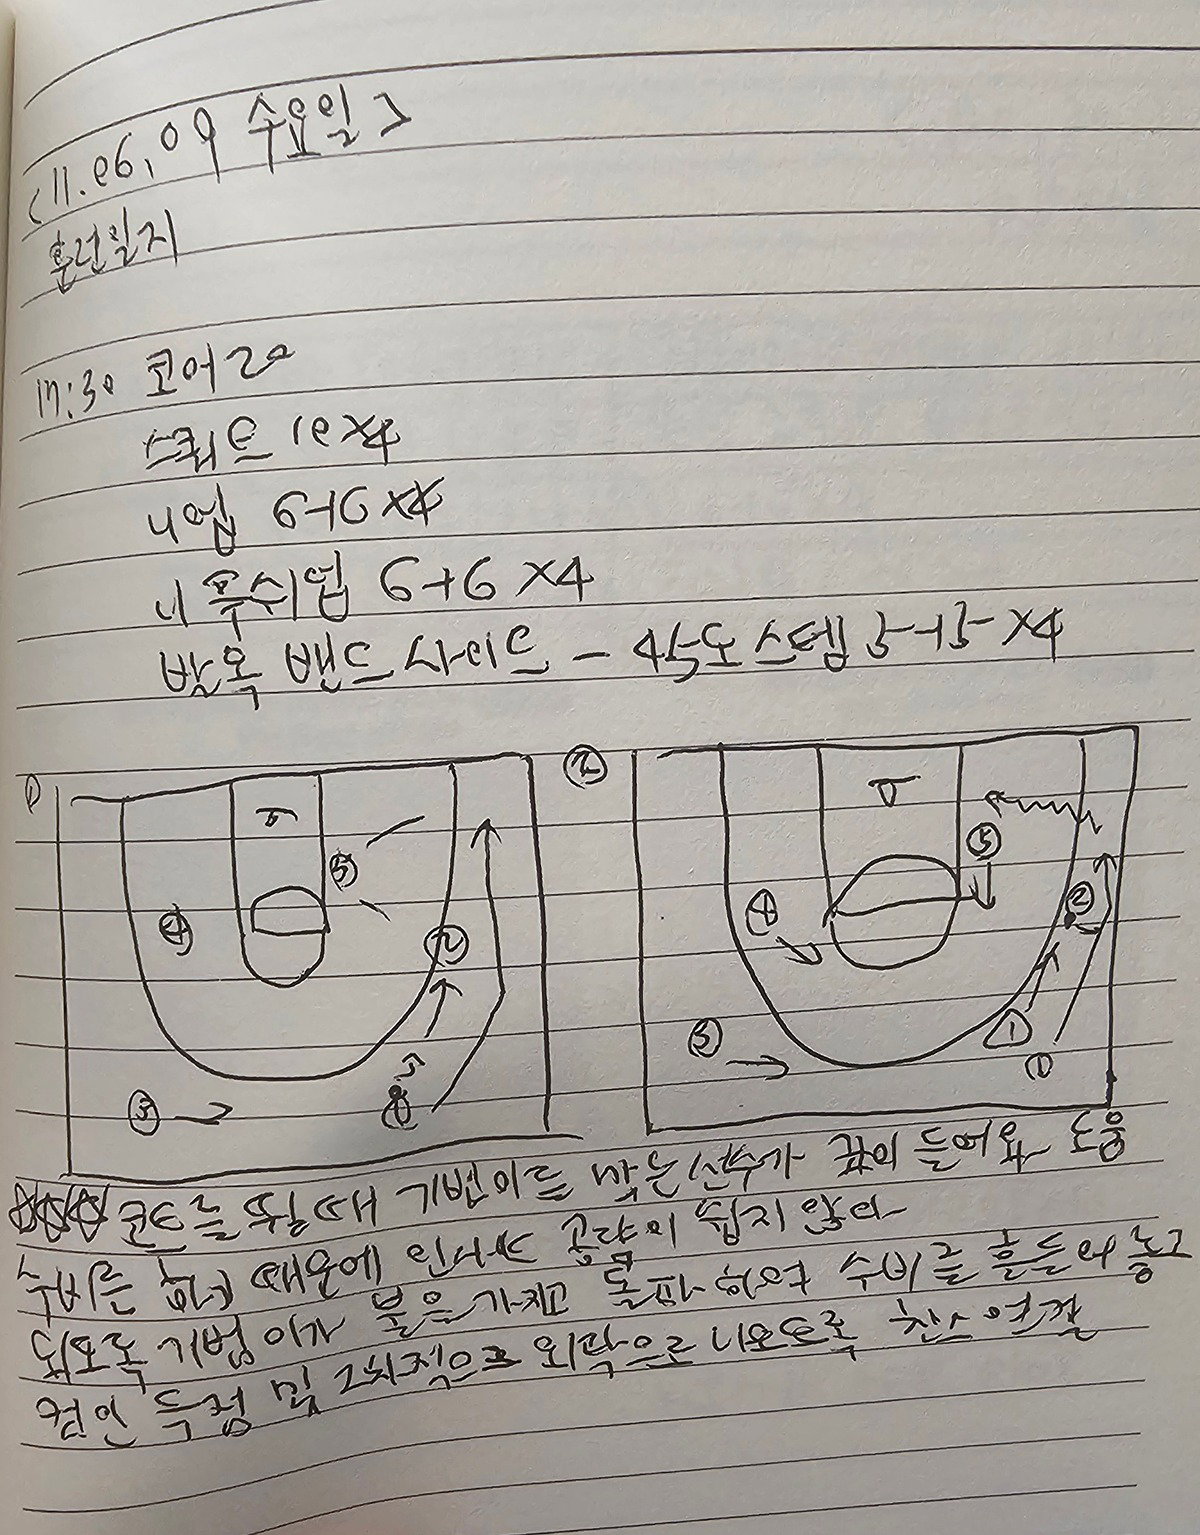 <11.06.09 수요일>
훈련일지
17:30 코어 20
스쿼트 10 X4
니업 6+6 X4
니 푸쉬업 6+6 X4
발목 밴드 사이드 - 스텝 5+5 X4
① ②
⑤ ⑤
④ ② ④ ②
③ ① ③ ① ①
코트를 뛸 때 기범이를 막는 선수가 깊이 들어와 도움
수비를 하기 때문에 인사이드 공략이 쉽지 않다
되도록 기범이가 볼을 가지고 돌파하여 수비를 흔들어 놓고
개인 득점 및 2차적으로 외곽으로 나오도록 찬스 연결